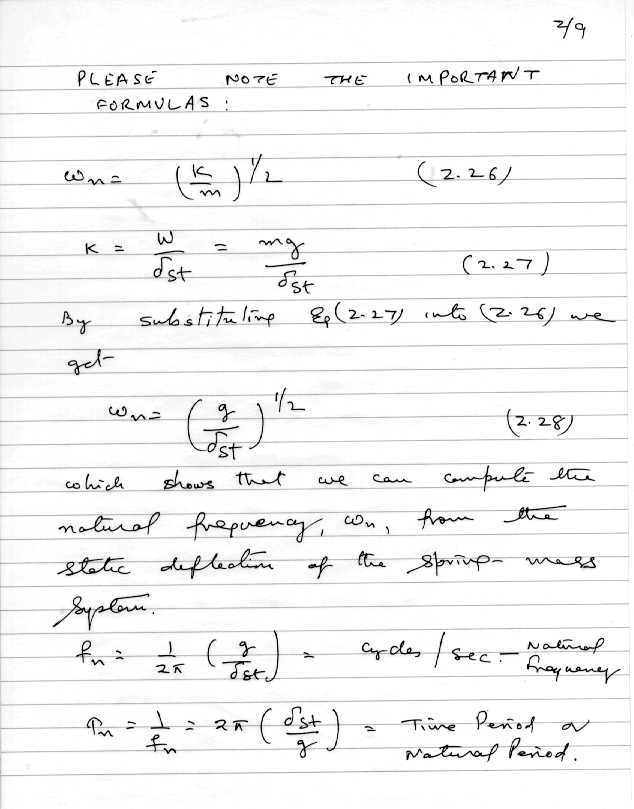 2/9
PLEASE NOTE THE IMPORTANT
FORMULAS :
ωn = (K/m)^1/2 (2.26)
K = W/δst = mg/δst (2.27)
By substituting Eq(2.27) into (2.26) we
get
ωn = (g/δst)^1/2 (2.28)
which shows that we can compute the
natural frequency, ωn, from the
static deflection of the spring-mass
System.
fn = 1/2π (g/δst) = cycles/sec. - Natural Frequency
τn = 1/fn = 2π (δst/g) = Time Period or
Natural Period.